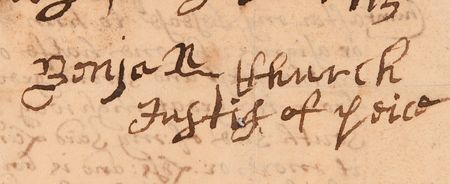 Benja Church
Justis of peice